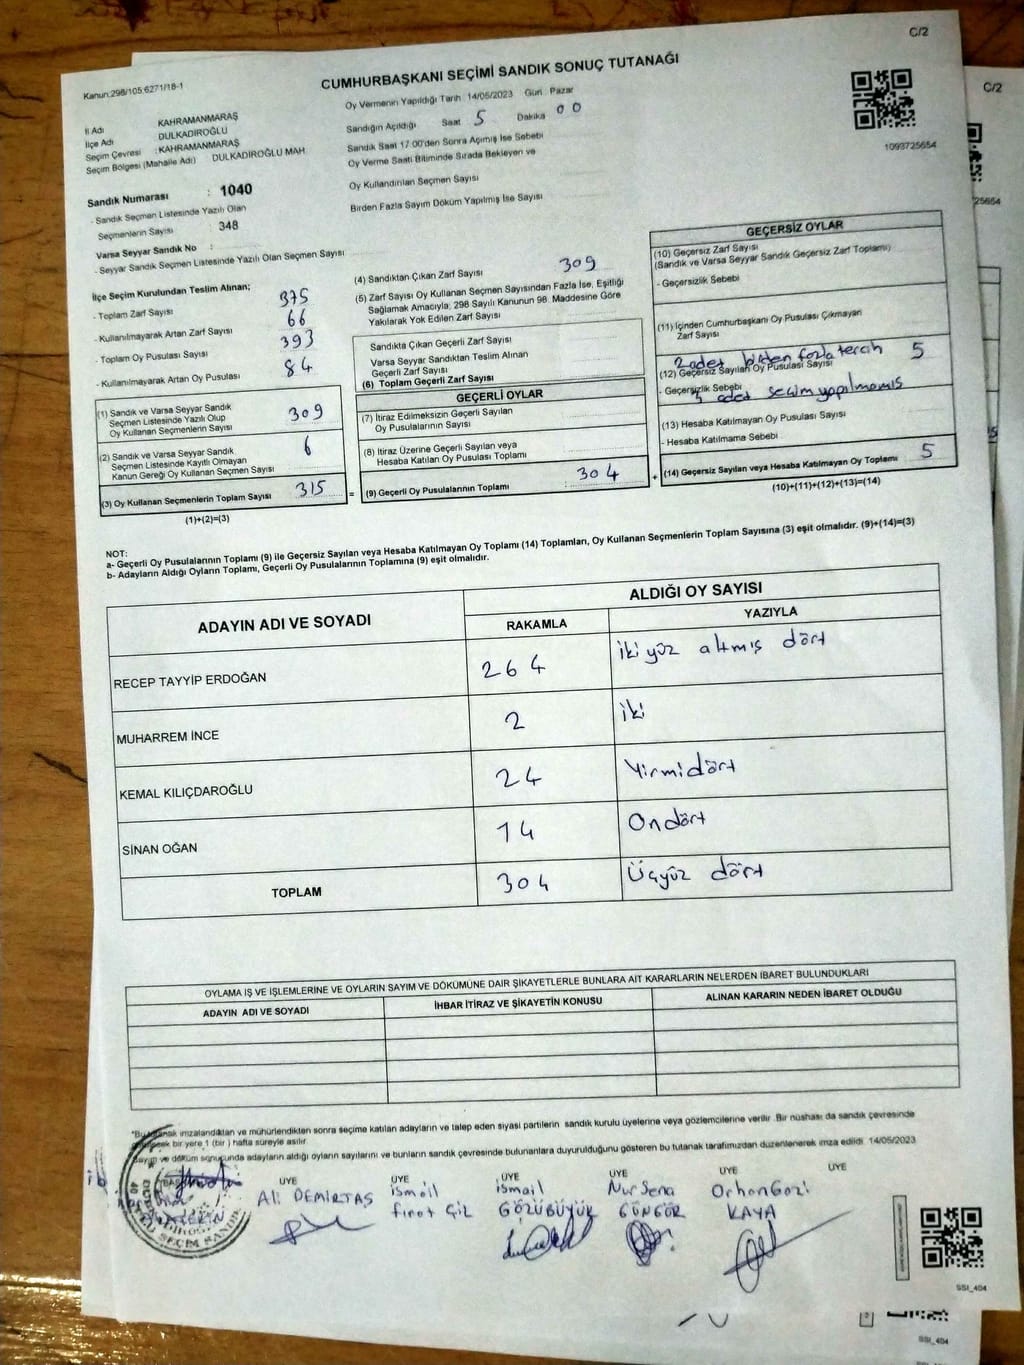 C/2
Kanun:298/105;6271/18-1
CUMHURBAŞKANI SEÇİMİ SANDIK SONUÇ TUTANAĞI
İl Adı : KAHRAMANMARAŞ
İlçe Adı : DULKADİROĞLU
Seçim Çevresi : KAHRAMANMARAŞ
Seçim Bölgesi (Mahalle Adı) DULKADİROĞLU MAH.
Oy Vermenin Yapıldığı Tarih : 14/05/2023 Gün : Pazar
Sandığın Açıldığı Saat 5 Dakika 00
Sandık Saat 17:00'den Sonra Açımış İse Sebebi
Oy Verme Saati Bitiminde Sırada Bekleyen ve
Oy Kullandırılan Seçmen Sayısı
Birden Fazla Sayım Döküm Yapılmış İse Sayısı
1093725654
Sandık Numarası : 1040
- Sandık Seçmen Listesinde Yazılı Olan
Seçmenlerin Sayısı : 348
Varsa Seyyar Sandık No :
- Seyyar Sandık Seçmen Listesinde Yazılı Olan Seçmen Sayısı
İlçe Seçim Kurulundan Teslim Alınan;
- Toplam Zarf Sayısı 375
- Kullanılmayarak Artan Zarf Sayısı 66
- Toplam Oy Pusulası Sayısı 393
- Kullanılmayarak Artan Oy Pusulası 84
(1) Sandık ve Varsa Seyyar Sandık
Seçmen Listesinde Yazılı Olup
Oy Kullanan Seçmenlerin Sayısı 309
(2) Sandık ve Varsa Seyyar Sandık
Seçmen Listesinde Kayıtlı Olmayan
Kanun Gereği Oy Kullanan Seçmen Sayısı 6
(3) Oy Kullanan Seçmenlerin Toplam Sayısı 315 =
(1)+(2)=(3)
(4) Sandıktan Çıkan Zarf Sayısı 309
(5) Zarf Sayısı Oy Kullanan Seçmen Sayısından Fazla İse, Eşitliği
Sağlamak Amacıyla, 298 Sayılı Kanunun 98. Maddesine Göre
Yakılarak Yok Edilen Zarf Sayısı
Sandıkta Çıkan Geçerli Zarf Sayısı
Varsa Seyyar Sandıktan Teslim Alınan
Geçerli Zarf Sayısı
(6) Toplam Geçerli Zarf Sayısı
GEÇERLİ OYLAR
(7) İtiraz Edilmeksizin Geçerli Sayılan
Oy Pusulalarının Sayısı
(8) İtiraz Üzerine Geçerli Sayılan veya
Hesaba Katılan Oy Pusulası Toplamı
(9) Geçerli Oy Pusulalarının Toplamı : 304 +
GEÇERSİZ OYLAR
(10) Geçersiz Zarf Sayısı
(Sandık ve Varsa Seyyar Sandık Geçersiz Zarf Toplamı)
- Geçersizlik Sebebi
(11) İçinden Cumhurbaşkanı Oy Pusulası Çıkmayan
Zarf Sayısı
2 adet birden fazla tercih 5
(12) Geçersiz Sayılan Oy Pusulası Sayısı
- Geçersizlik Sebebi
adet seçim yapılmamış
(13) Hesaba Katılmayan Oy Pusulası Sayısı
- Hesaba Katılmama Sebebi
(14) Geçersiz Sayılan veya Hesaba Katılmayan Oy Toplamı 5
(10)+(11)+(12)+(13)=(14)
NOT:
a- Geçerli Oy Pusulalarının Toplamı (9) ile Geçersiz Sayılan veya Hesaba Katılmayan Oy Toplamı (14) Toplamları, Oy Kullanan Seçmenlerin Toplam Sayısına (3) eşit olmalıdır. (9)+(14)=(3)
b- Adayların Aldığı Oyların Toplamı, Geçerli Oy Pusulalarının Toplamına (9) eşit olmalıdır.
ADAYIN ADI VE SOYADI ALDIĞI OY SAYISI
RAKAMLA YAZIYLA
RECEP TAYYİP ERDOĞAN 264 iki yüz altmış dört
MUHARREM İNCE 2 iki
KEMAL KILIÇDAROĞLU 24 Yirmidört
SİNAN OĞAN 14 Ondört
TOPLAM 304 Üçyüz dört
OYLAMA İŞ VE İŞLEMLERİNE VE OYLARIN SAYIM VE DÖKÜMÜNE DAİR ŞİKAYETLERLE BUNLARA AİT KARARLARIN NELERDEN İBARET BULUNDUKLARI
ADAYIN ADI VE SOYADI İHBAR İTİRAZ VE ŞİKAYETİN KONUSU ALINAN KARARIN NEDEN İBARET OLDUĞU
imzalandıktan ve mühürlendikten sonra seçime katılan adayların ve talep eden siyasi partilerin sandık kurulu üyelerine veya gözlemcilerine verilir. Bir nüshası da sandık çevresinde
bir yere 1 (bir) hafta süreyle asılır.
Sayım ve döküm sonucunda adayların aldığı oyların sayılarını ve bunların sandık çevresinde bulunanlara duyurulduğunu gösteren bu tutanak tarafımızdan düzenlenerek imza edildi. 14/05/2023
ÜYE ÜYE ÜYE ÜYE ÜYE ÜYE
Ali DEMİRTAŞ
ismail
fırat Çiz
ismail
GÖZÜBÜYÜK
Nur Sena
GÜNGÖR
OrhanGazi
KAYA
SEÇİM SANDIK
SSI_404
C/2
25654
SSI_404